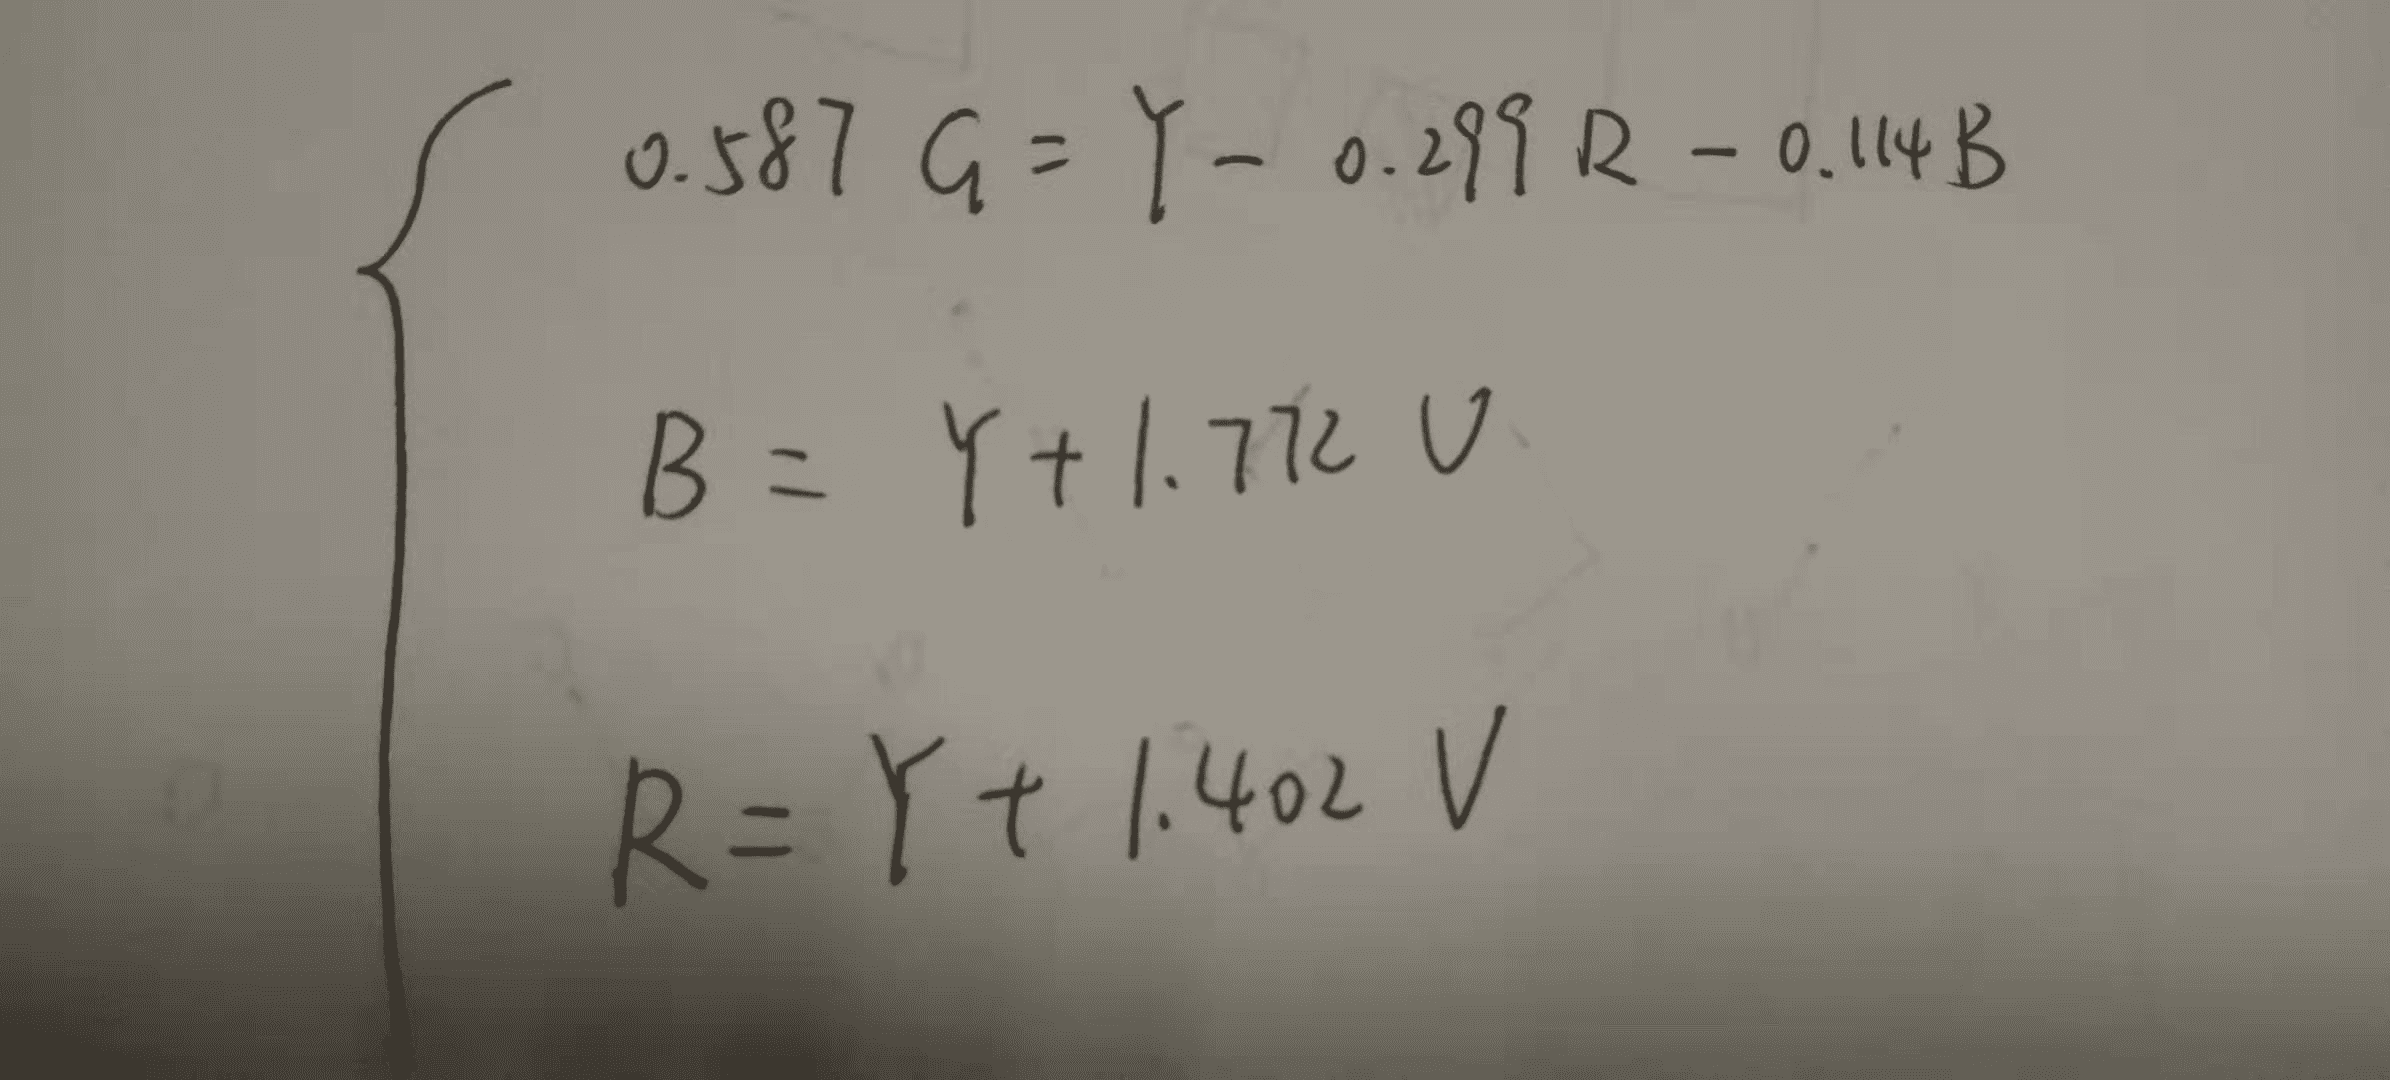 0.587 G = Y - 0.299 R - 0.114 B
B = Y + 1.772 U
R = Y + 1.402 V